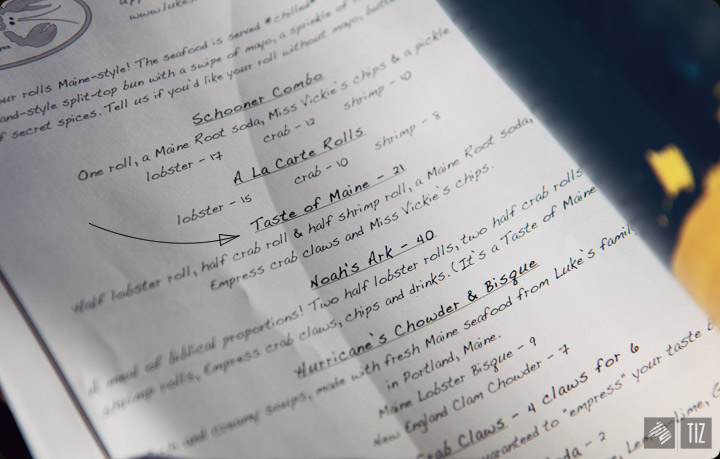 www.luke
our rolls Maine-style! The seafood is served *chilled*
and-style split-top bun with a swipe of mayo, a sprinkle of
of secret spices. Tell us if you'd like your roll without mayo, butter
Schooner Combo
One roll, a Maine Root soda, Miss Vickie's chips & a pickle
lobster - 17 crab - 12 shrimp - 10
A La Carte Rolls
lobster - 15 crab - 10 shrimp - 8
Taste of Maine - 21
Half lobster roll, half crab roll & half shrimp roll, a Maine Root soda,
Empress crab claws and Miss Vickie's chips.
Noah's Ark - 40
A meal of biblical proportions! Two half lobster rolls, two half crab rolls
shrimp rolls, Empress crab claws, chips and drinks. (It's a Taste of Maine
Hurricane's Chowder & Bisque
and creamy soups, made with fresh Maine seafood from Luke's family
in Portland, Maine.
Maine Lobster Bisque - 9
New England Clam Chowder - 7
Crab Claws - 4 claws for 6
guaranteed to "empress" your taste
soda - 2
TIZ